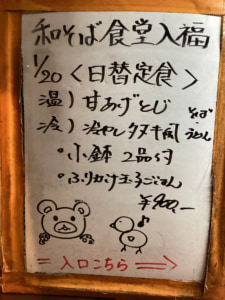 和そば食堂入福
1/20 <日替定食>
温) 甘あげとじ
冷) 冷やしタヌキ風 そば うどん
・小鉢 2品付
・ふりかけ玉子ごはん
¥900,-
= 入口こちら ⇒